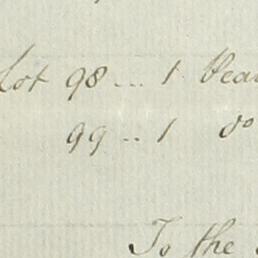 Lot 98 ... 1 Bea
99 .. 1 do
To the